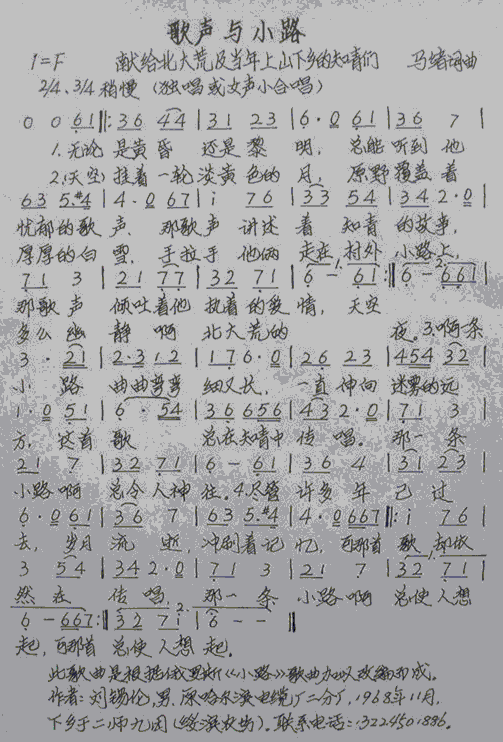 歌声与小路
1=F 献给北大荒及当年上山下乡的知青们 马绪词曲
2/4、3/4 稍慢 (独唱或女声小合唱)
0 0 61 ‖: 36 44 | 31 23 | 6·0 61 | 36 7 |
1.无论 是黄昏 还是黎 明, 总能 听到 他
2.(天空) 挂着一轮淡黄色的 月, 原野覆盖着
63 5.#4 | 4·0 67 | i 76 | 33 54 | 34 2·0 |
忧郁的歌 声. 那歌声 讲述 着 知青 的故事,
厚厚的白 雪. 手拉手 他俩 走在 村外 小路上,
71 3 | 21 77 | 32 71 | 6 - 61 :‖ 6 - 661 |
那歌声 倾吐着他 执着的爱 情, 天空
多么幽 静啊 北大荒的 夜。3.啊条
3· 21 | 2·312 | 176·0 | 26 23 | 454 32 |
小 路 曲曲弯弯 细又长, 一直伸向 迷雾的远
1·0 51 | 6· 54 | 36 656 | 432·0 | 71 3 |
方, 这首 歌 总在知青中 传 唱。 那一条
21 7 | 32 71 | 6 - 61 | 36 4 | 31 23 |
小路啊 总令人神 往。4.尽管 许多年 已 过
6·0 61 | 36 7 | 63 5.#4 | 4·0667 ‖: i 76 |
去, 岁月 流 逝, 冲刷着记 忆, 可那首 歌 却依
3 54 | 34 2·0 | 71 3 | 21 7 | 32 71 |
然 在 传 唱. 那一条 小路啊 总使人想
6 - 667 :‖ 32 7i | 6 - - ‖
起, 可那首 总使人想 起.
此歌曲是根据俄罗斯《小路》歌曲加以改编而成。
作者: 刘锡伦, 男. 原哈尔滨电缆厂二分厂, 1968年11月,
下乡于二师九团 (绥滨农场). 联系电话: 3224501886.